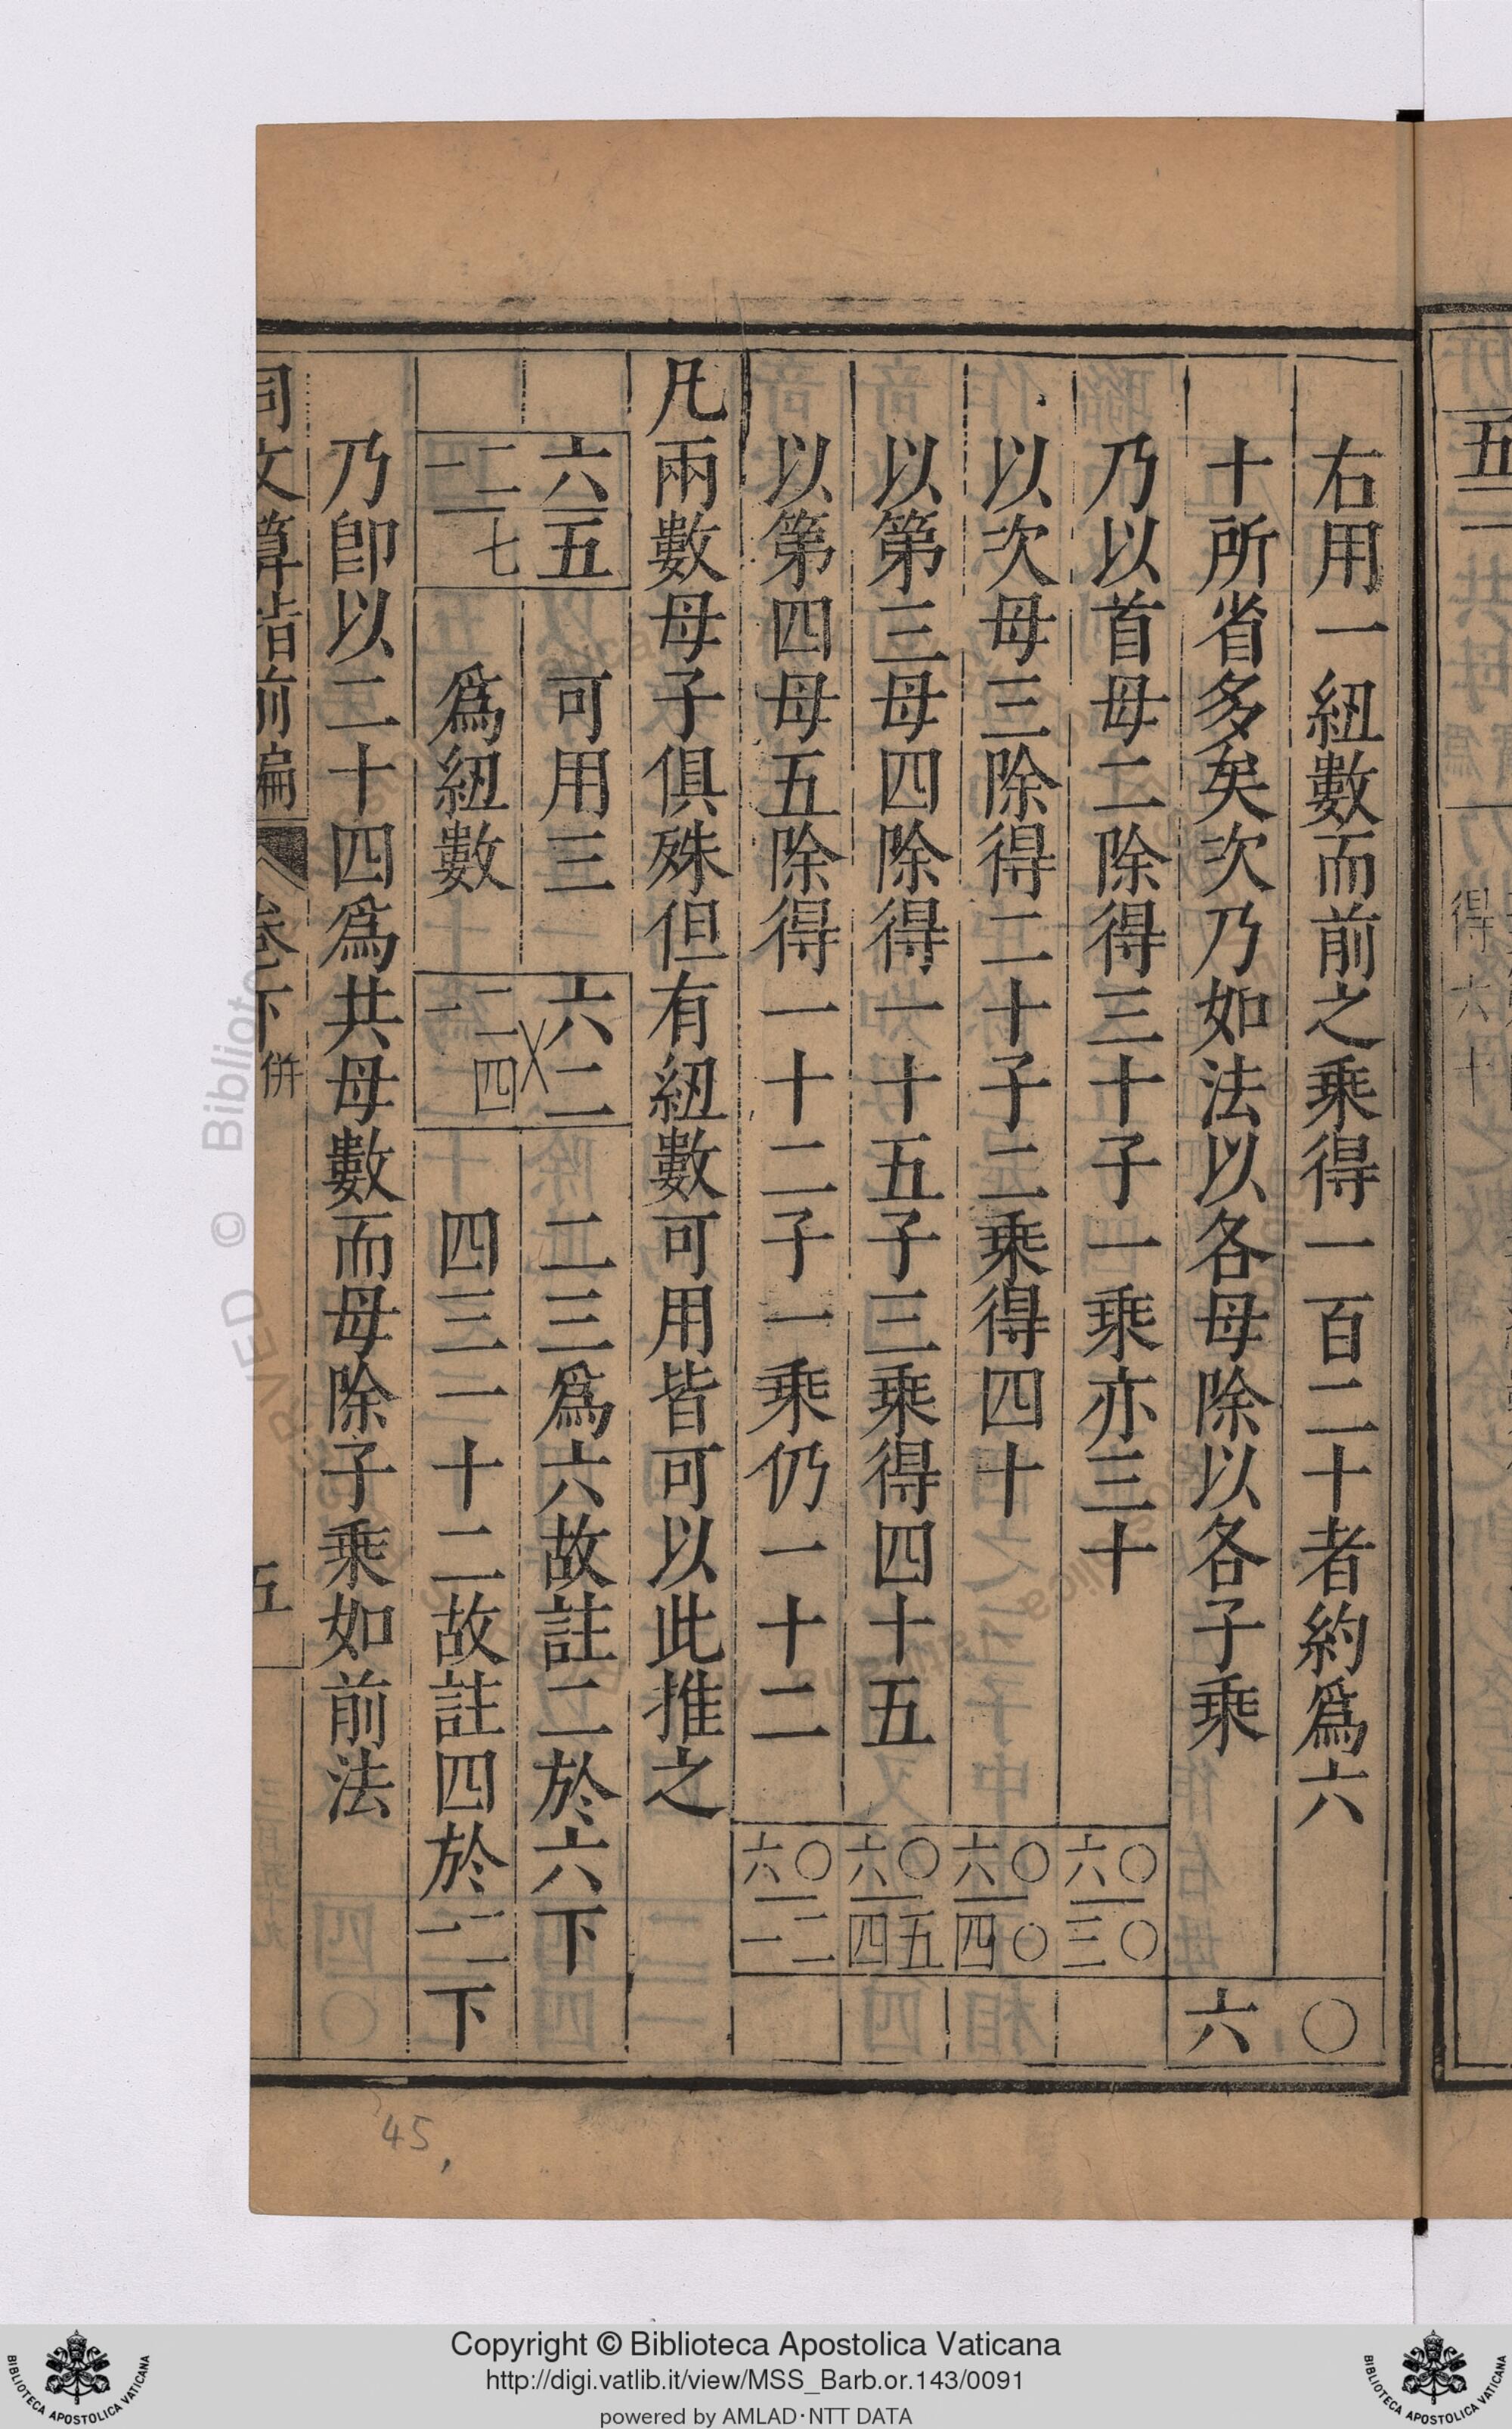 右用一紐數而前之乘得一百二十者約爲六〇
十所省多矣次乃如法以各母除以各子乘六
乃以首母二除得三十子一乘亦三十
六〇
三〇
以次母三除得二十子二乘得四十
六〇
四〇
以第三母四除得一十五子三乘得四十五
六〇
四五
以第四母五除得一十二子一乘仍一十二
六〇
一二
凡兩數母子俱殊但有紐數可用皆可以此推之
六五
一二七
可用三
爲紐數
六二
一二四
二三爲六故註二於六下
四三一十二故註四於一二下
乃卽以二十四爲共母數而母除子乘如前法
同文算指前編
卷下
併
五
五
得六十
45
Copyright © Biblioteca Apostolica Vaticana
http://digi.vatlib.it/view/MSS_Barb.or.143/0091
powered by AMLAD·NTT DATA
BIBLIOTECA APOSTOLICA VATICANA
BIBLIOTECA APOSTOLICA VATICANA